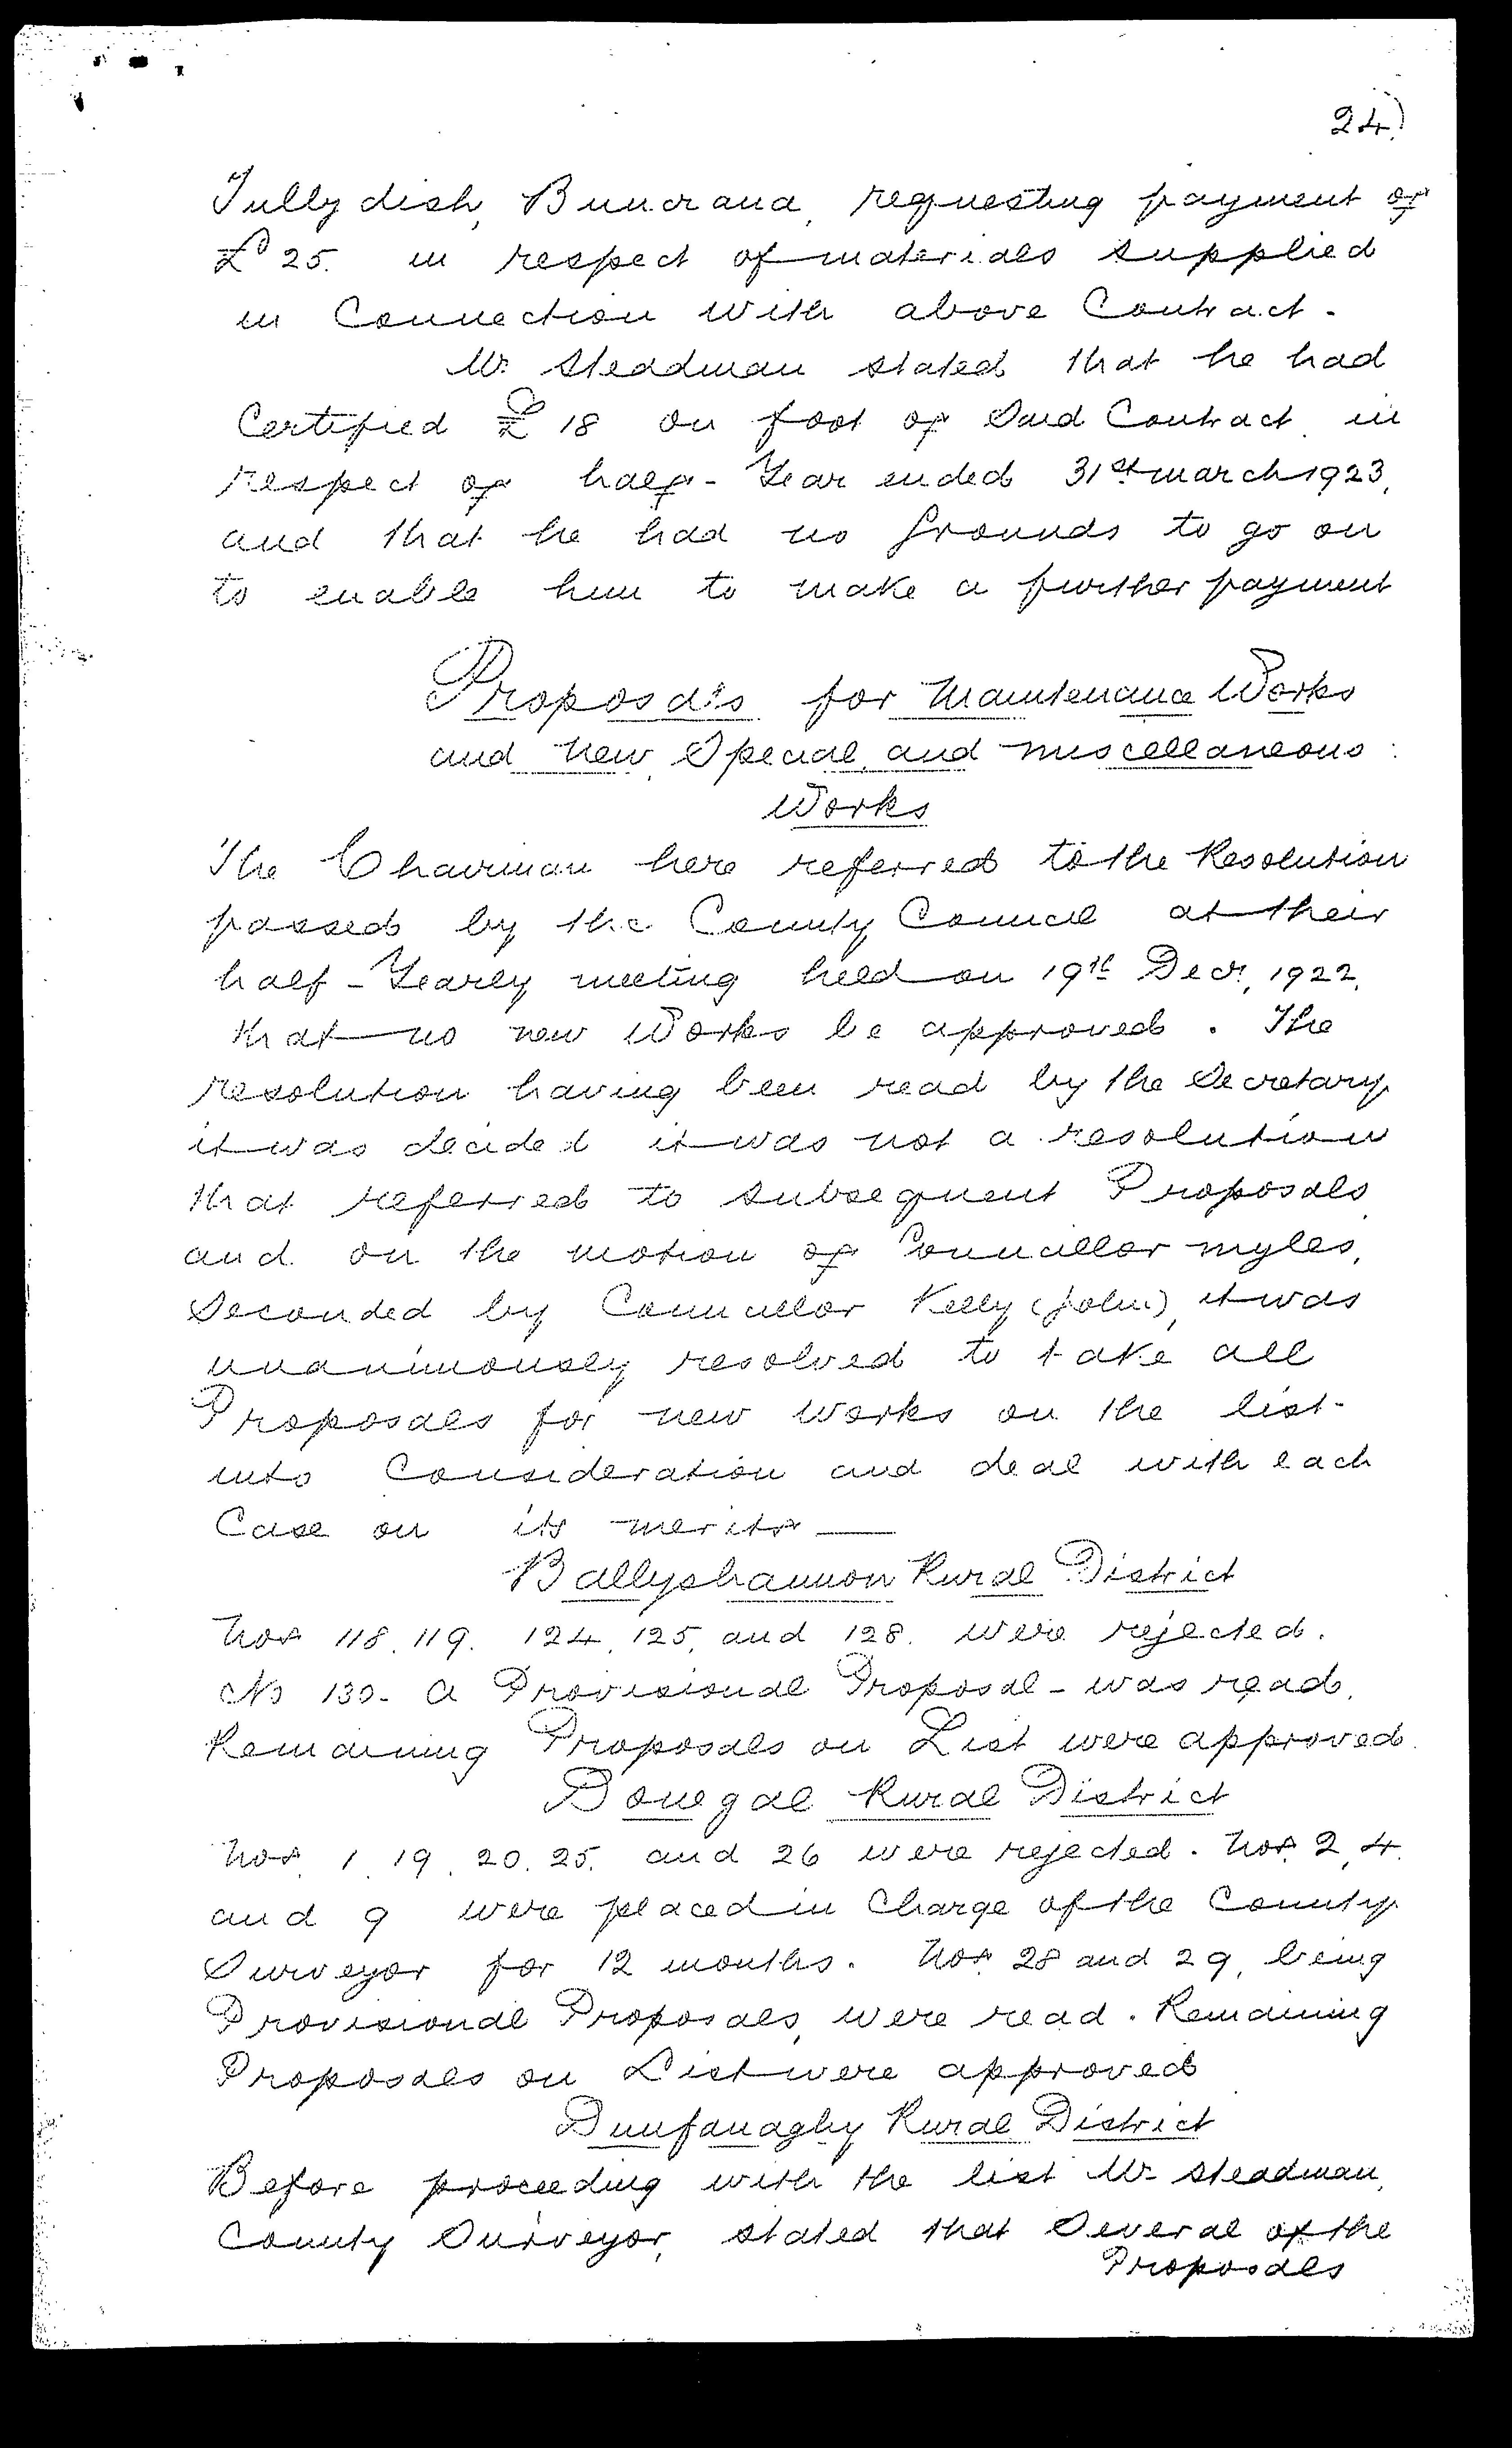 24)
Tullydish, Buncrana, requesting payment of
£25. in respect of materials supplied
in Connection with above Contract.
Mr Steadman stated that he had
Certified £18 on foot of Said Contract in
respect of half-Year ended 31st March 1923,
and that he had no grounds to go on
to enable him to make a further payment
Proposals for Maintenance Works
and New, Special, and Miscellaneous
Works
The Chairman here referred to the Resolution
passed by the County Council at their
half-Yearly meeting held on 19th Decr, 1922,
that no new Works be approved. The
resolution having been read by the Secretary
it was decided it was not a resolution
that referred to subsequent Proposals
and on the motion of Councillor Myles,
Seconded by Councillor Kelly (John), it was
unanimously resolved to take all
Proposals for new works on the list
into Consideration and deal with each
Case on its merits —
Ballyshannon Rural District
Nos 118, 119, 124, 125, and 128, were rejected.
No 130- a Provisional Proposal - was read.
Remaining Proposals on List were approved.
Donegal Rural District
Nos. 1, 19, 20, 25, and 26 were rejected. Nos. 2, 4,
and 9 were placed in Charge of the County
Surveyor for 12 months. Nos. 28 and 29, being
Provisional Proposals, were read. Remaining
Proposals on List were approved
Dunfanaghy Rural District
Before proceeding with the list Mr Steadman,
County Surveyor, stated that Several of the
Proposals